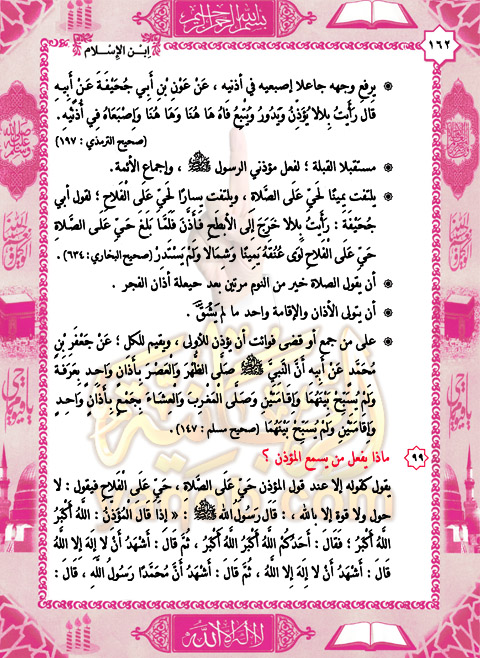 بسم الله الرحمن الرحيم
١٦٢
ابن الإسلام
يرفع وجهه جاعلا إصبعيه في أذنيه ، عَنْ عَوْنِ بْنِ أَبِي جُحَيْفَةَ عَنْ أَبِيهِ
قال رَأَيْتُ بِلَالا يُؤَذِّنُ وَيَدُورُ وَيُتْبِعُ فَاهُ هَا هُنَا وَهَا هُنَا وَإِصْبَعَاهُ فِي أُذُنَيْهِ.
(صحيح الترمذي : ١٩٧)
مستقبلا القبلة ؛ لفعل مؤذني الرسول ﷺ ، وإجماع الأئمة.
يلتفت يمينًا لحَيَّ عَلَى الصَّلاة ، ويلتفت يسارًا لحَيَّ عَلَى الْفَلاحِ ؛ لقول أبي
جُحَيْفَةَ : رَأَيْتُ بِلالا خَرَجَ إِلَى الأَبْطَحِ فَأَذَّنَ فَلَمَّا بَلَغَ حَيَّ عَلَى الصَّلاةِ
حَيَّ عَلَى الْفَلاحِ لَوَى عُنُقَهُ يَمِينًا وَشِمَالا وَلَمْ يَسْتَدِرْ (صحيح البخاري: ٦٣٤).
أن يقول الصلاة خير من النوم مرتين بعد حيعلة أذان الفجر .
أن يتولى الأذان والإقامة واحد ما لم يَشُقَّ .
على من جمع أو قضى فوائت أن يؤذن للأولى ، ويقيم للكل ؛ عَنْ جَعْفَرِ بْنِ
مُحَمَّدٍ عَنْ أَبِيهِ أَنَّ النَّبِيَّ ﷺ صَلَّى الظُّهْرَ وَالْعَصْرَ بِأَذَانٍ وَاحِدٍ بِعَرَفَةَ
وَلَمْ يُسَبِّحْ بَيْنَهُمَا وَإِقَامَتَيْنِ وَصَلَّى الْمَغْرِبَ وَالْعِشَاءَ بِجَمْعٍ بِأَذَانٍ وَاحِدٍ
وَإِقَامَتَيْنِ وَلَمْ يُسَبِّحْ بَيْنَهُمَا (صحيح سلم : ١٤٧).
٩٩ ماذا يفعل من يسمع المؤذن ؟
يقول كقوله إلا عند قول المؤذن حَيَّ عَلَى الصَّلاةِ ، حَيَّ عَلَى الْفَلاحِ فيقول : لا
حول ولا قوة إلا بالله ، : قَالَ رَسُولُ اللَّهِ ﷺ : « إِذَا قَالَ الْمُؤَذِّنُ : اللَّهُ أَكْبَرُ
اللَّهُ أَكْبَرُ ؛ فَقَالَ : أَحَدُكُمُ اللَّهُ أَكْبَرُ اللَّهُ أَكْبَرُ ، ثُمَّ قَالَ : أَشْهَدُ أَنْ لا إِلَهَ إِلا اللَّهُ
قَالَ : أَشْهَدُ أَنْ لا إِلَهَ إِلا اللَّهُ ، ثُمَّ قَالَ : أَشْهَدُ أَنَّ مُحَمَّدًا رَسُولُ اللَّهِ ، قَالَ :
لا إله إلا الله